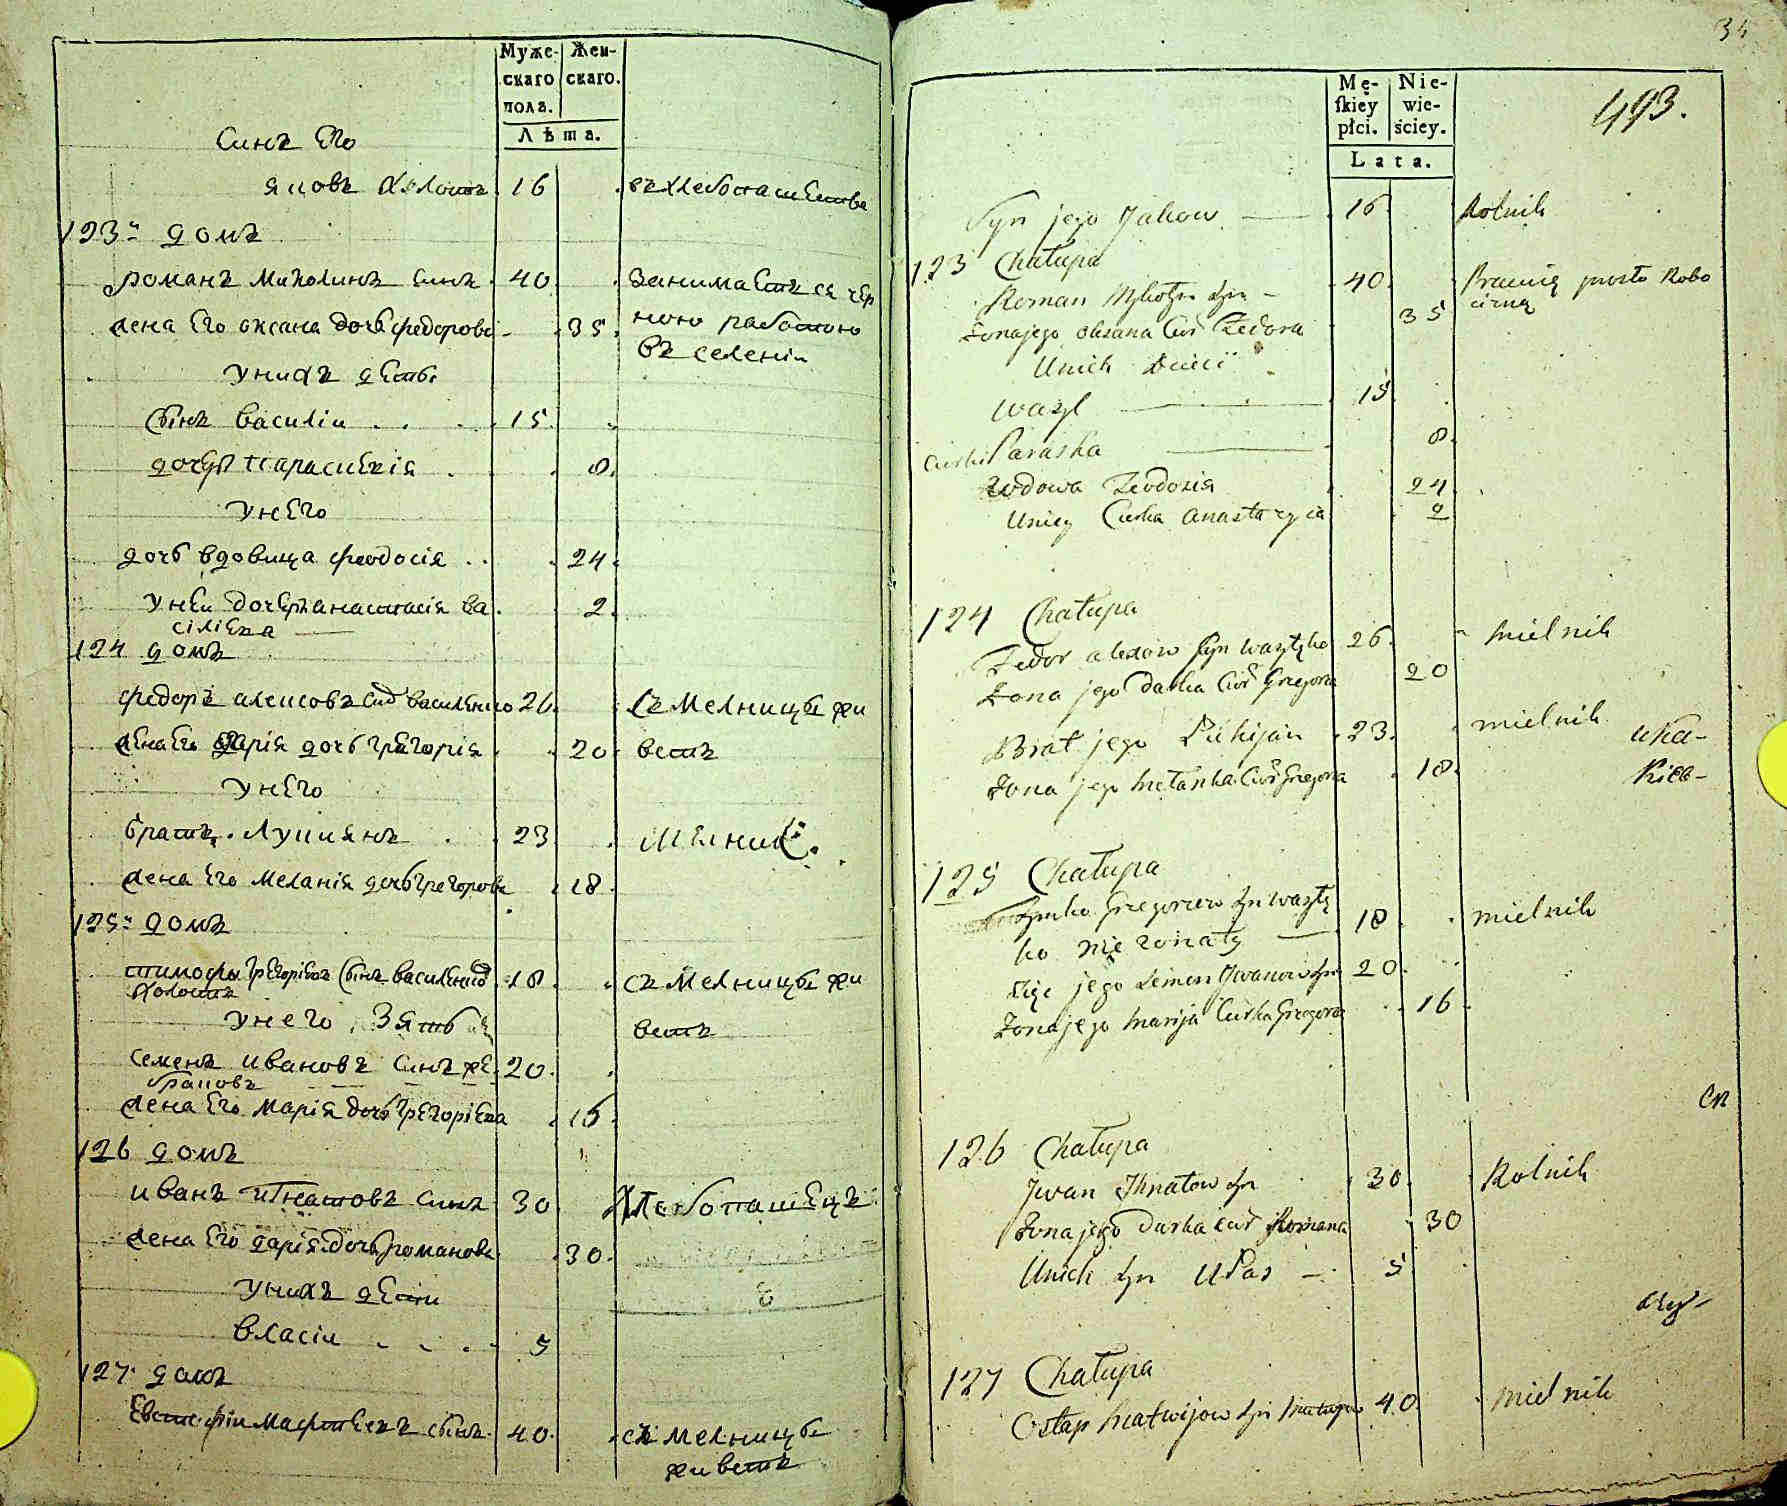 Муже-
скаго
пола.
Жен-
скаго.
Лѣта.
Синъ Его
яковъ холостъ 16 в хлебопашества
123: домъ
романъ Михолинъ синъ 40 Занимаетъ ся чер
жена Его оксана дочь федорова 35 ною работою
въ селении
унихъ дети
Синъ василіи 15
дочеръ параскевія 8
унего
дочь вдовица феодосія 24
унеи дочеръ анастасія ва 2
силіева
124 домъ
федоръ алексовъ Синъ василенко 26 Съ мелницы жи
жена Его дарія дочь григорія 20 ветъ
унего
братъ Лукиянъ 23 Мелник
жена Его меланія дочь григорова 18
125: домъ
тимофеи григоріевъ Синъ василенко 18 съ мелницы жи
холостъ
унего Зять ветъ
Семенъ ивановъ Синъ 20
жена Его марія дочь григоріева 16
126 домъ
иванъ игнатовъ синъ 30 Хлебопашецъ
жена Его дарія дочь романова 30
унихъ дети
власіи 5
127: домъ
Евстафіи матфеевъ Синъ 40 съ мелницы
живетъ
34
Mę-
skiey
płci.
Nie-
wie-
ściey.
Lata.
493.
Syn jego Jakow 16 Rolnik
123 Chałupa
Roman Mykołyn syn 40 Pracuię prosto Robo
cizną
Zona jego oksana Cur Fedora 35
Unich Dzieci
Wasyl 15
Curka Paraska 8
Wdowa Feodosia 24
Uniey Curka Anastazyia 2
124 Chałupa
Fedor alexow syn Wasylko 26 mielnik
Zona jego Darka Cur Gregora 20
Brat jego Łukijan 23 mielnik
Zona jego Melanka Cur Gregora 18
125 Chałupa
Tymko Gregoriew syn Wasyl
ko nie zonaty 18 mielnik
Zięc jego Semen Jwanow syn 20
Zona jego Marija Curka Gregora 16
126 Chałupa
Jwan Jhnatow syn 30 Rolnik
Zona jego Darka Cur Romana 30
Unich syn Ułas 5
127 Chałupa
Ostap Matwijow syn 40 mielnik